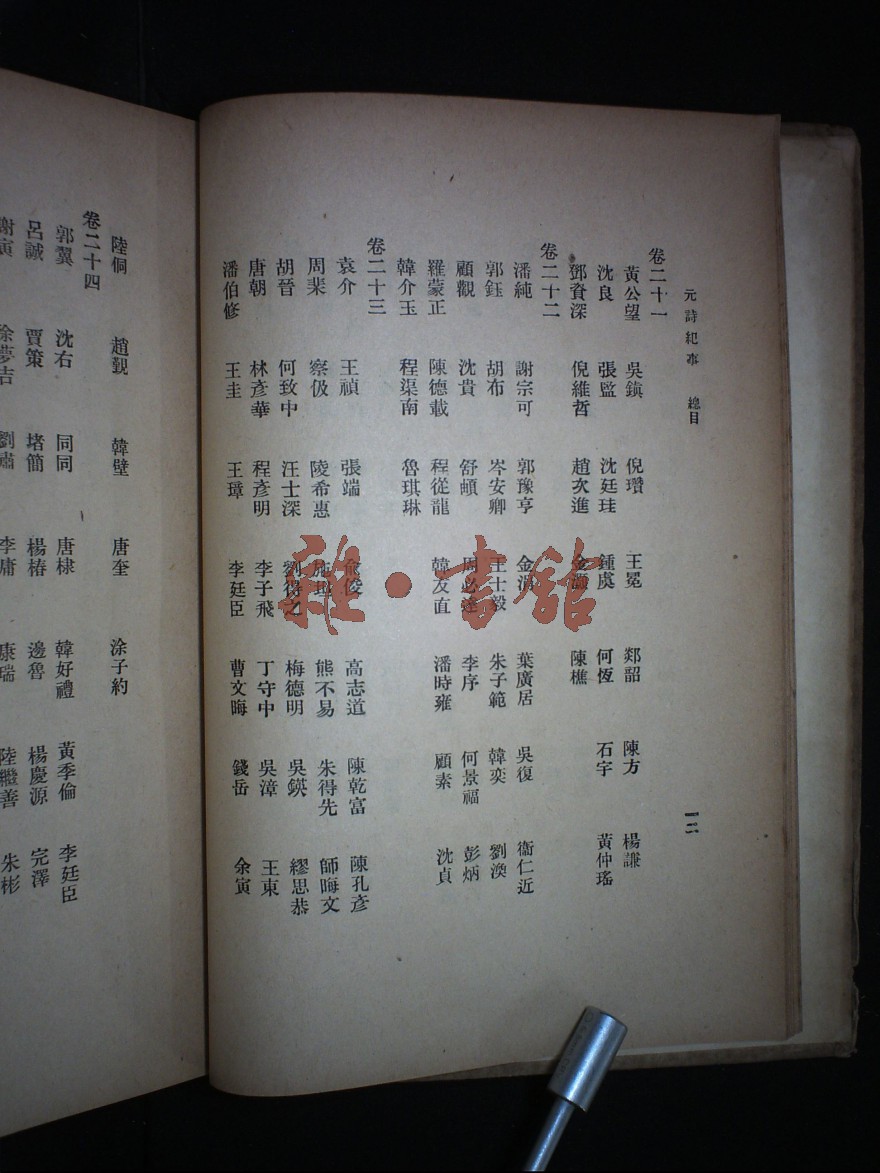 元詩紀事　總目　一二
卷二十一
黃公望　吳鎮　倪瓚　王冕　郯韶　陳方　楊謙
沈良　張監　沈廷珪　鍾虞　何恆　石宇　黃仲瑤
鄧資深　倪維哲　趙次進　陳樵
卷二十二
潘純　謝宗可　郭豫亨　葉廣居　吳復　衞仁近
郭鈺　胡布　岑安卿　王士毅　朱子範　韓奕　劉渙
顧觀　沈貴　舒頔　周必達　李序　何景福　彭炳
羅蒙正　陳德載　程從龍　韓友直　潘時雍　顧素　沈貞
韓介玉　程渠南　魯琪琳
卷二十三
袁介　王禎　張端　俞俊　高志道　陳乾富　陳孔彥
周棐　察伋　陵希惠　熊不易　朱得先　師晦文
胡晉　何致中　汪士深　劉得之　梅德明　吳鍈　繆思恭
唐朝　林彥華　程彥明　李子飛　丁守中　吳漳　王東
潘伯修　王圭　王璋　李廷臣　曹文晦　錢岳　余寅
陸侗　趙覲　韓壁　唐奎　涂子約
卷二十四
郭翼　沈右　同同　唐棣　韓好禮　黃季倫　李廷臣
呂誠　賈策　堵簡　楊椿　邊魯　楊慶源　完澤
謝寅　徐夢吉　劉肅　李庸　康瑞　陸繼善　朱彬
雜·書館